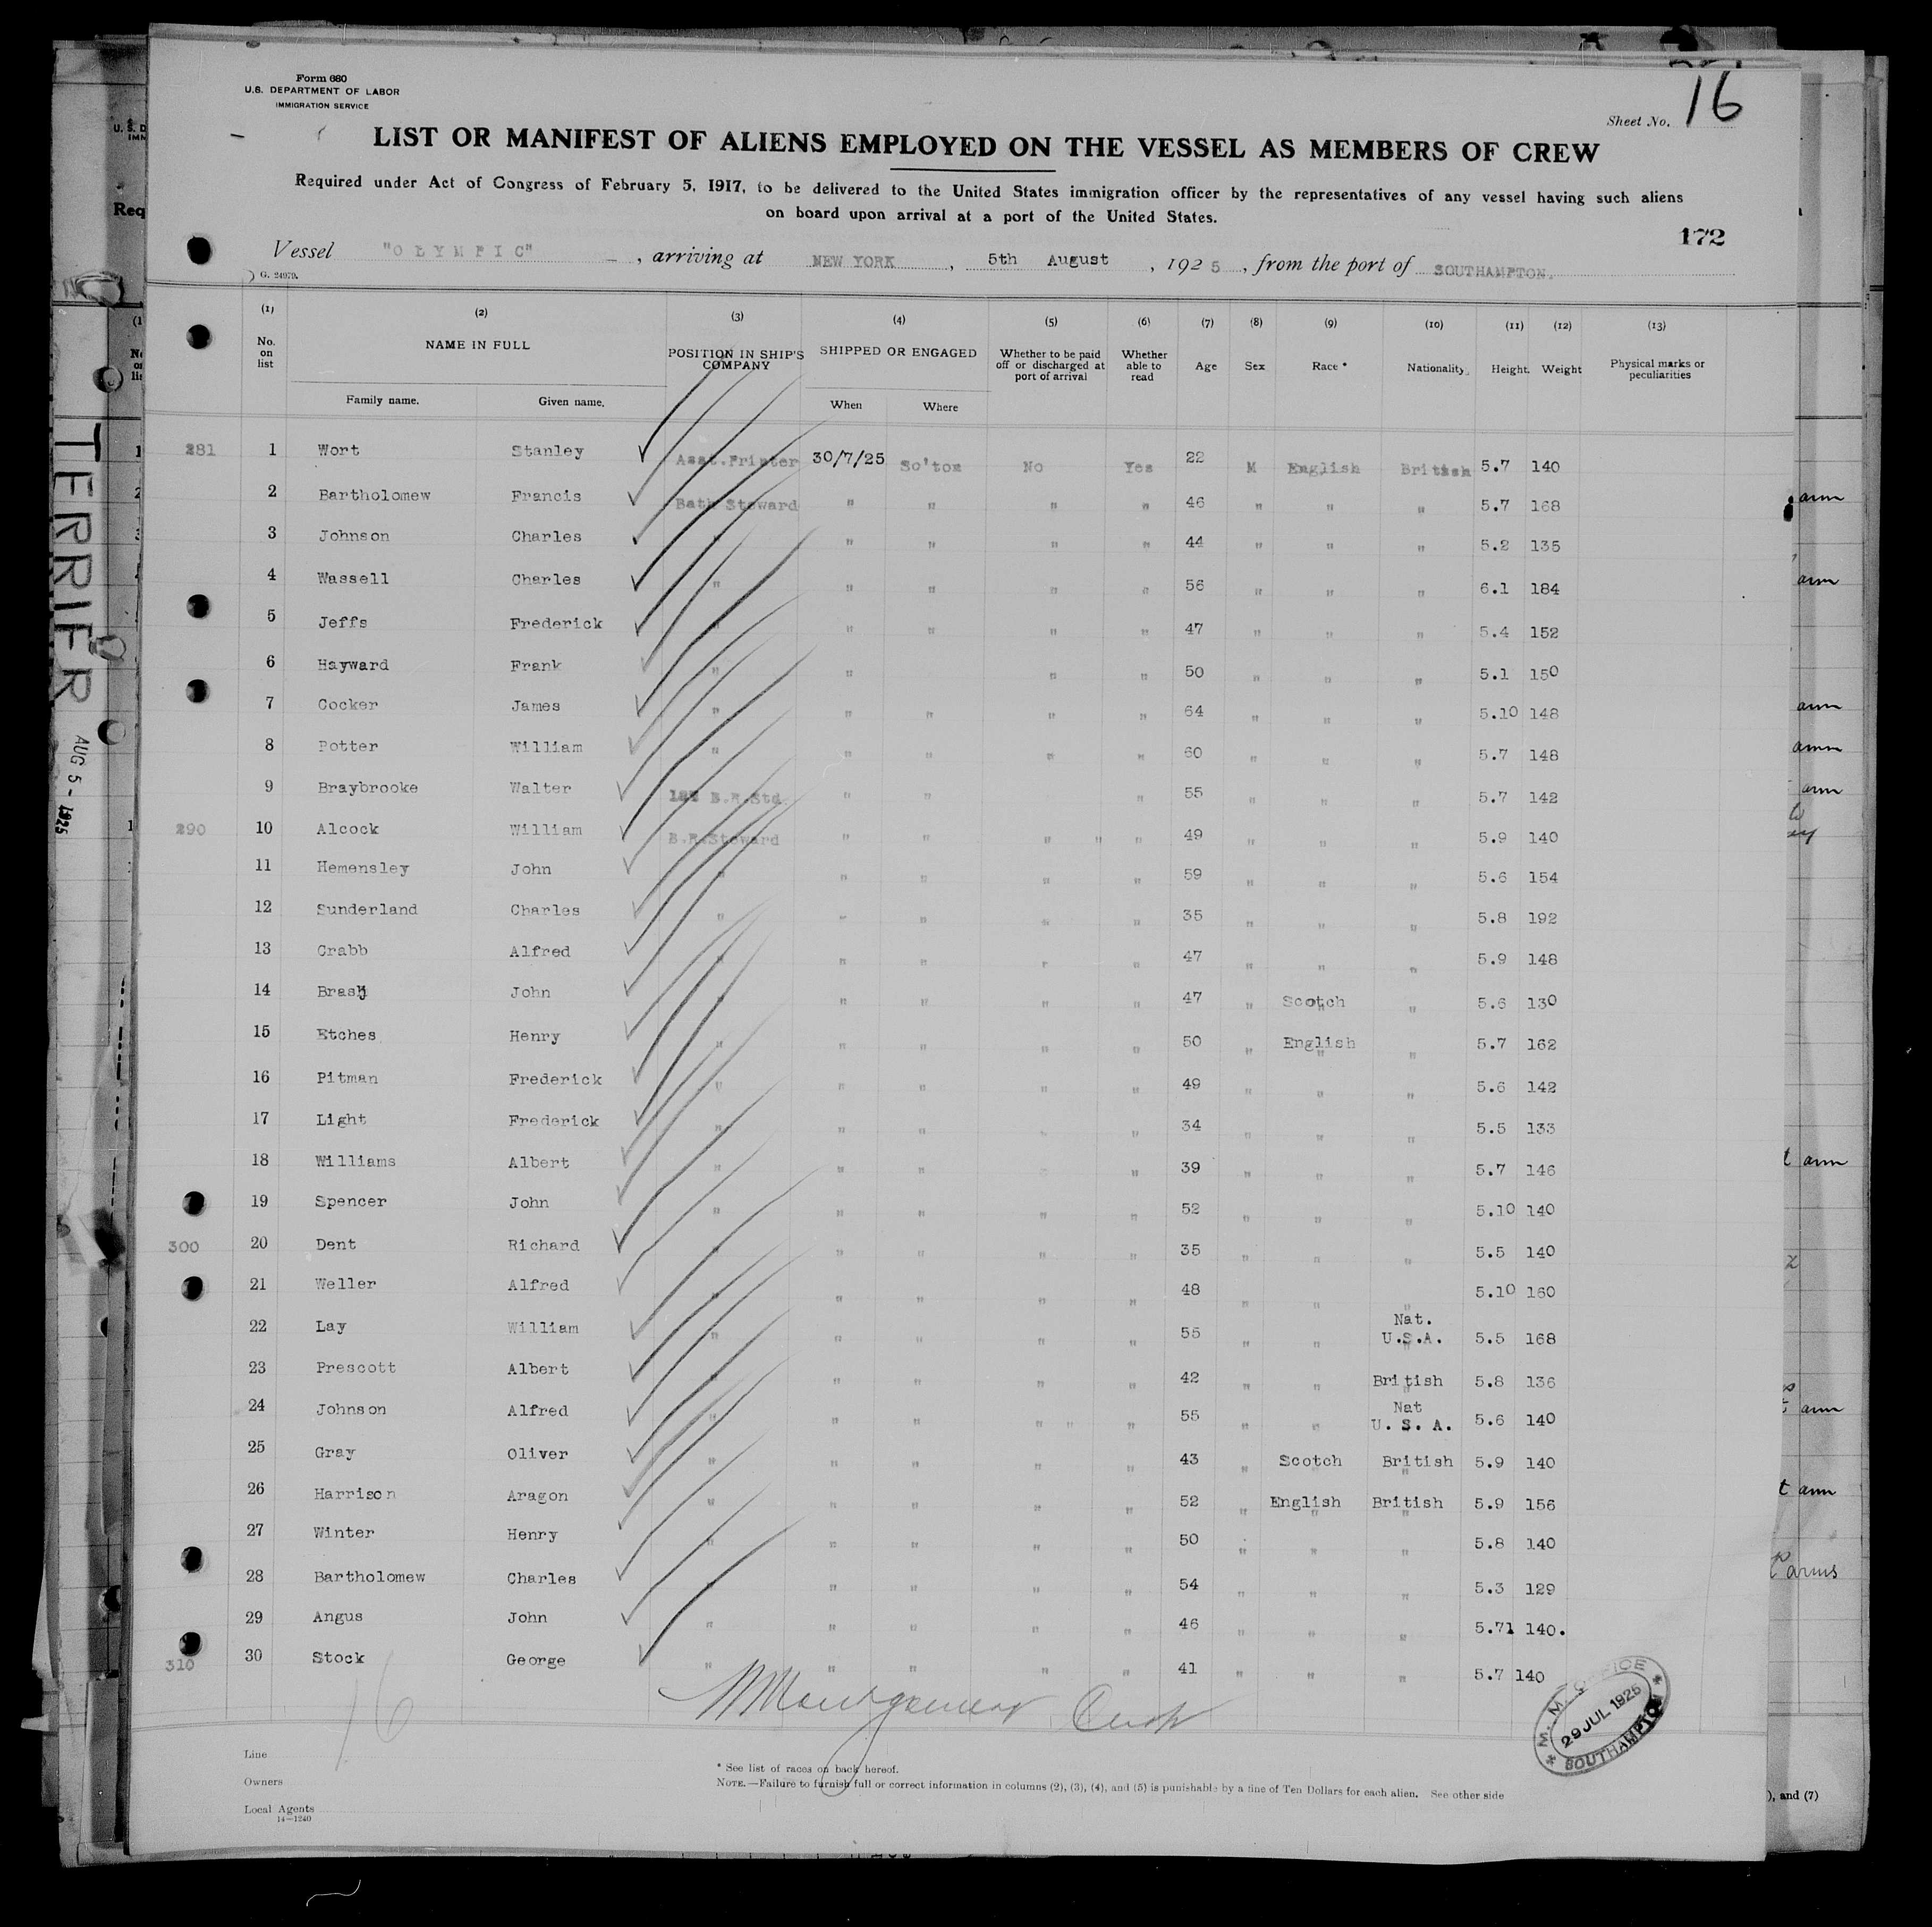 Form 680
U.S. DEPARTMENT OF LABOR
IMMIGRATION SERVICE
Sheet No. 16
LIST OR MANIFEST OF ALIENS EMPLOYED ON THE VESSEL AS MEMBERS OF CREW
Required under Act of Congress of February 5, 1917, to be delivered to the United States immigration officer by the representatives of any vessel having such aliens
on board upon arrival at a port of the United States.
172
Vessel "OLYMPIC", arriving at NEW YORK, 5th August, 1925, from the port of SOUTHAMPTON.
G. 24979.
(1) (2) (3) (4) (5) (6) (7) (8) (9) (10) (11) (12) (13)
No. on list NAME IN FULL POSITION IN SHIP'S COMPANY SHIPPED OR ENGAGED Whether to be paid off or discharged at port of arrival Whether able to read Age Sex Race * Nationality. Height. Weight Physical marks or peculiarities
Family name. Given name. When Where
281 1 Wort Stanley Asst.Printer 30/7/25 So'ton No Yes 22 M English British 5.7 140
2 Bartholomew Francis Bath Steward " " " " 46 " " " 5.7 168
3 Johnson Charles " " " " " 44 " " " 5.2 135
4 Wassell Charles " " " " " 56 " " " 6.1 184
5 Jeffs Frederick " " " " " 47 " " " 5.4 152
6 Hayward Frank " " " " 50 " " " 5.1 150
7 Cocker James " " " " " 64 " " " 5.10 148
8 Potter William " " " " " 60 " " " 5.7 148
9 Braybrooke Walter B.R.Std. " " " 55 " " " 5.7 142
290 10 Alcock William B.R.Steward " " " " " 49 " " " 5.9 140
11 Hemensley John " " " " " 59 " " " 5.6 154
12 Sunderland Charles " " " " " 35 " " " 5.8 192
13 Crabb Alfred " " " " " 47 " " " 5.9 148
14 Brash John " " " " " 47 " Scotch " 5.6 130
15 Etches Henry " " " " " 50 " English " 5.7 162
16 Pitman Frederick " " " " " 49 " " " 5.6 142
17 Light Frederick " " " " " 34 " " " 5.5 133
18 Williams Albert " " " " " 39 " " " 5.7 146
19 Spencer John " " " " " 52 " " " 5.10 140
300 20 Dent Richard " " " " 35 " " " 5.5 140
21 Weller Alfred " " " " " 48 " " " 5.10 160
22 Lay William " " " " " 55 " " Nat. U.S.A. 5.5 168
23 Prescott Albert " " " " " 42 " " British 5.8 136
24 Johnson Alfred " " " " " " 55 " " Nat U. S. A. 5.6 140
25 Gray Oliver " " " " " 43 " Scotch British 5.9 140
26 Harrison Aragon " " " " " 52 " English British 5.9 156
27 Winter Henry " " " " " 50 " " " 5.8 140
28 Bartholomew Charles " " " " " 54 " " " 5.3 129
29 Angus John " " " " " 46 " " " 5.71 140.
310 30 Stock George " " " " " 41 " " " 5.7 140
16
M. M. OFFICE
29 JUL 1925
SOUTHAMPTON
Line
Owners
Local Agents
14—1240
* See list of races on back hereof.
NOTE.—Failure to furnish full or correct information in columns (2), (3), (4), and (5) is punishable by a fine of Ten Dollars for each alien. See other side
), and (7)
TERRIER
AUG 5 - 1925
Req
arm
arm
arm
arm
arm
arm
arm
arm
arms